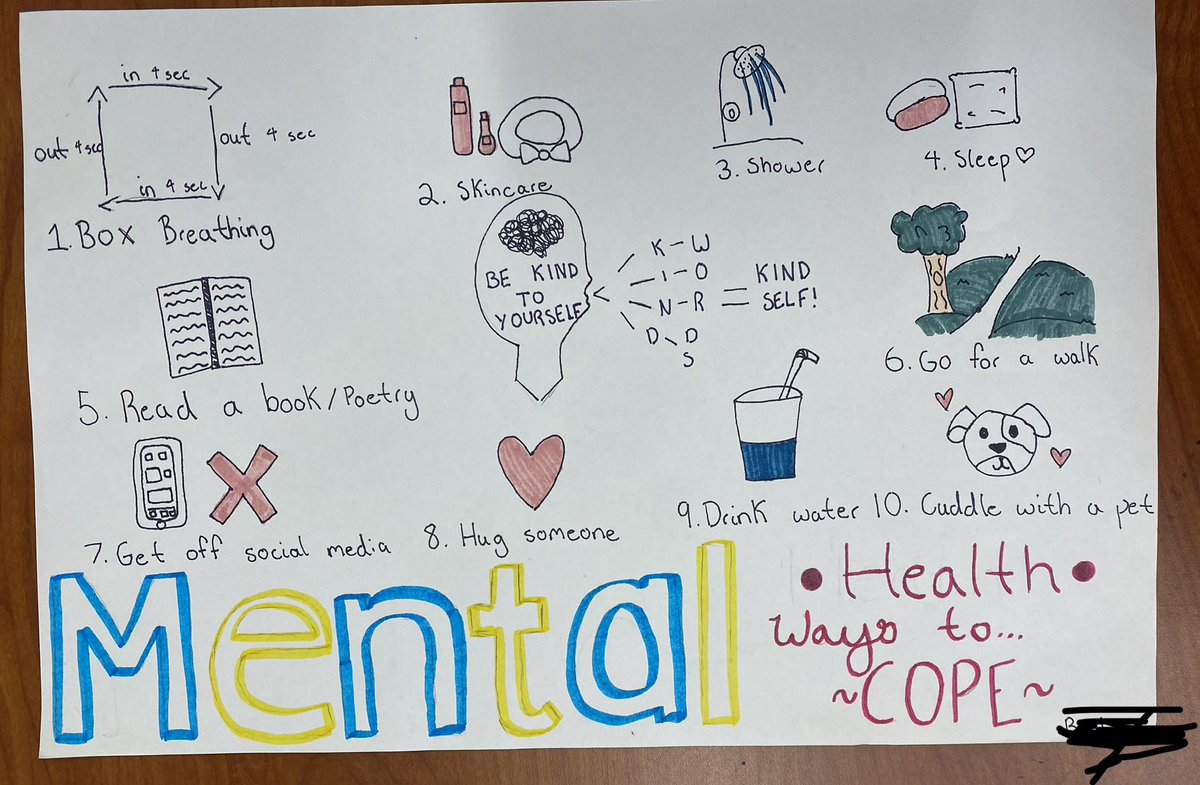 in 4 sec
out 4 sec
out 4 sec
in 4 sec
1. Box Breathing
2. Skincare
3. Shower
4. Sleep♡
BE KIND
TO
YOURSELF
K - W
I - O
N - R
D \ D
S
= KIND
SELF!
5. Read a book/Poetry
6. Go for a walk
7. Get off social media
8. Hug someone
9. Drink water
10. Cuddle with a pet
Mental
• Health •
Ways to...
~COPE~